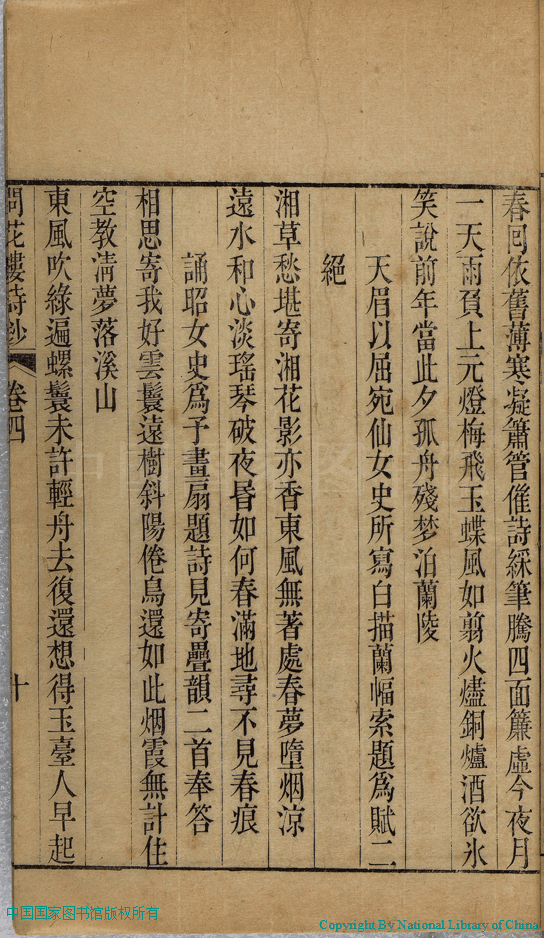 春囘依舊薄寒凝簫管催詩綵筆騰四面簾虛今夜月
一天雨負上元燈梅飛玉蝶風如翦火燼銅爐酒欲氷
笑說前年當此夕孤舟殘梦泊蘭陵
天眉以屈宛仙女史所寫白描蘭幅索題爲賦二
絕
湘草愁堪寄湘花影亦香東風無著處春夢墮烟涼
遠水和心淡瑤琴破夜昬如何春滿地尋不見春痕
誦昭女史爲予畫扇題詩見寄疊韻二首奉答
相思寄我好雲鬟遠樹斜陽倦鳥還如此烟霞無計住
空教淸夢落溪山
東風吹綠遍螺鬟未許輕舟去復還想得玉臺人早起
問花樓詩鈔 卷四 十
中国国家图书馆版权所有
Copyright By National Library of China